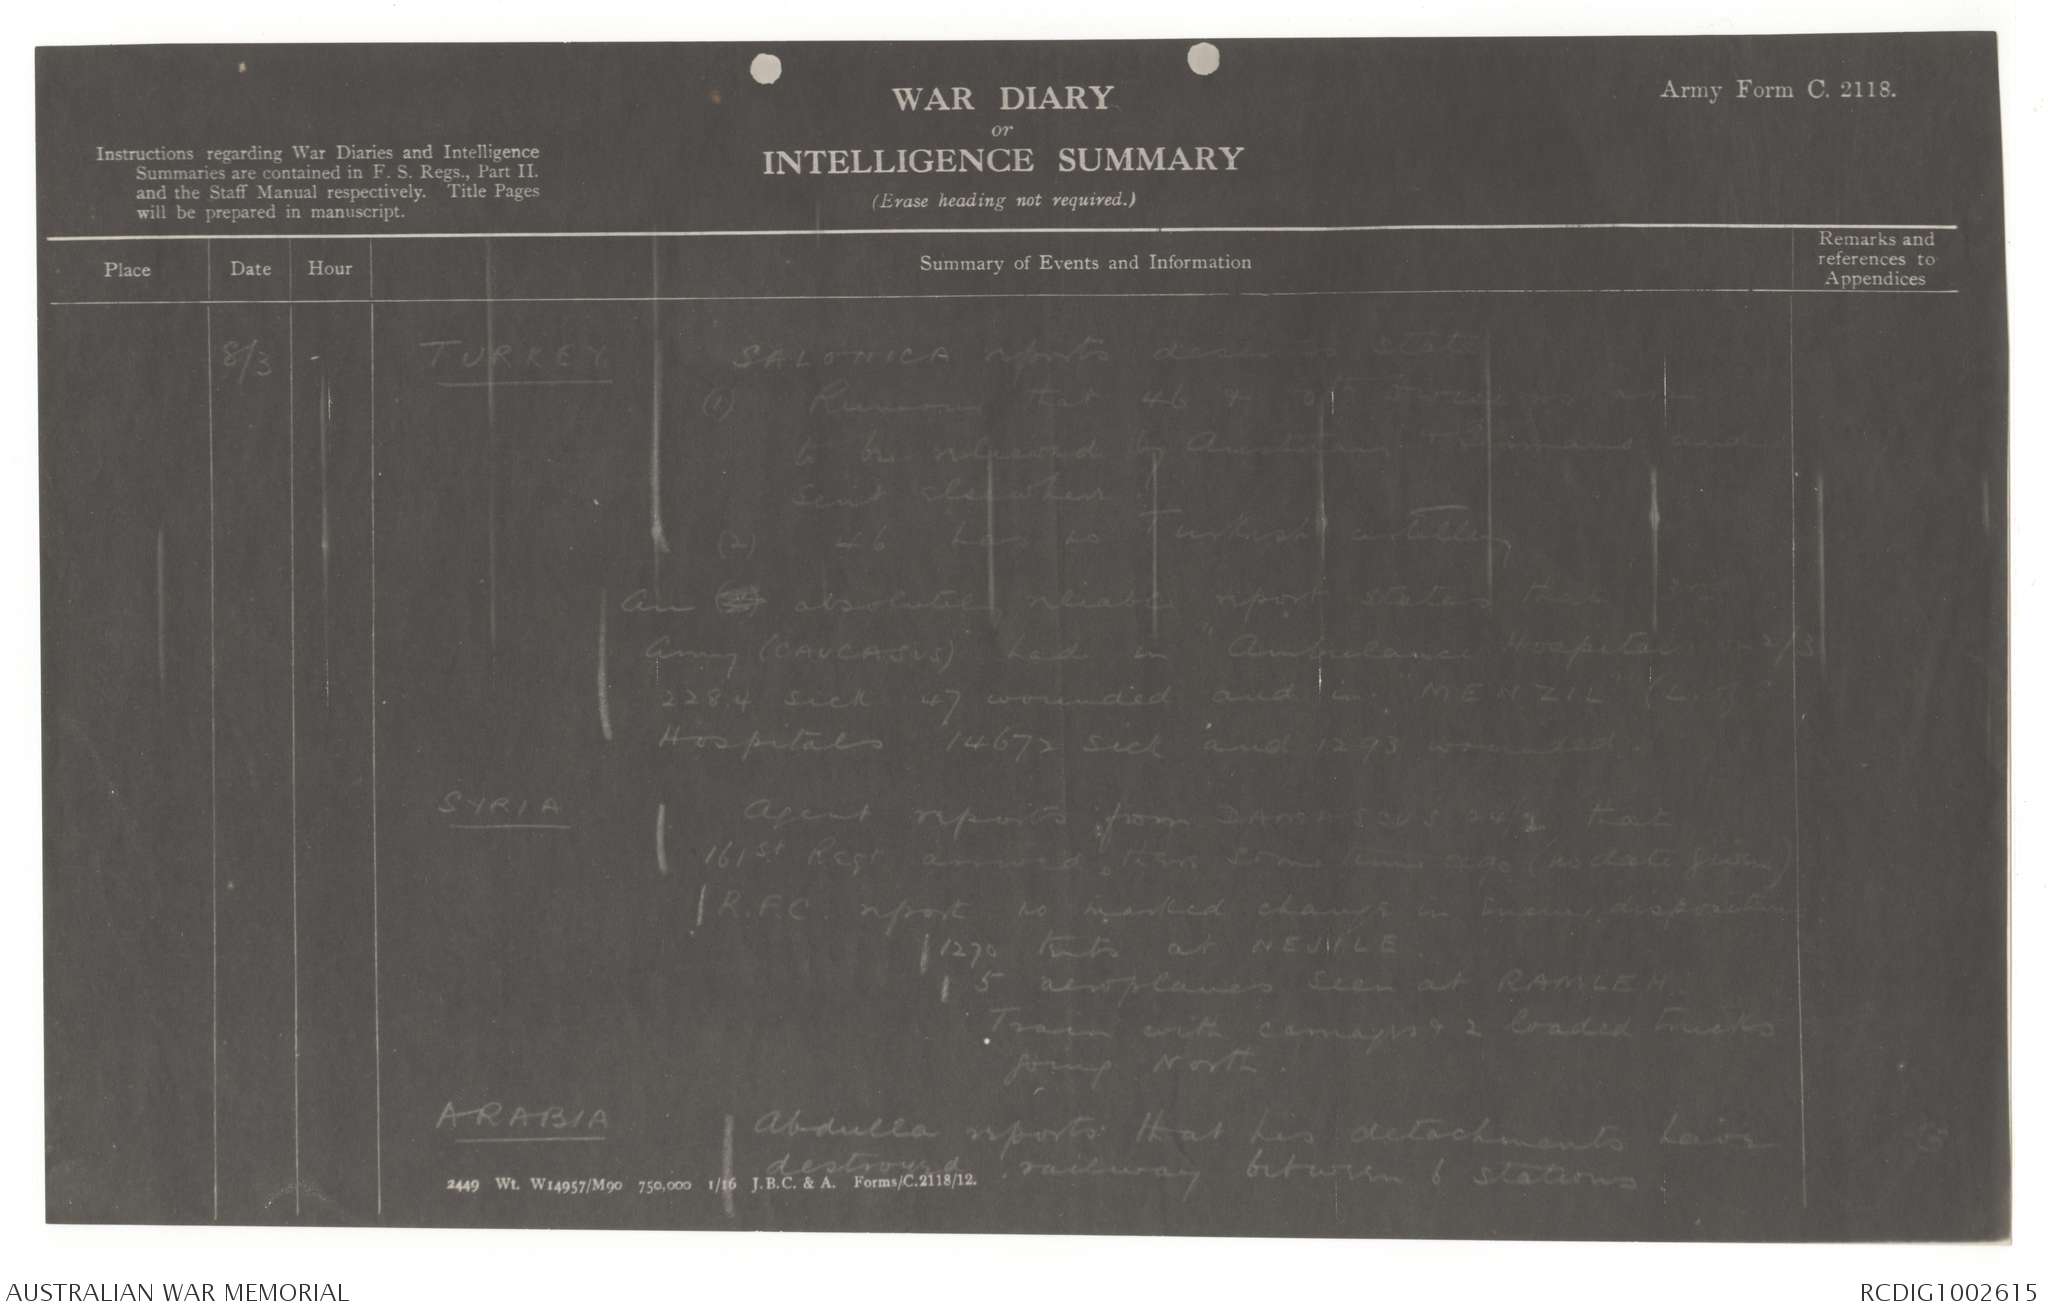 WAR DIARY
or
INTELLIGENCE SUMMARY
(Erase heading not required.)
Army Form C. 2118.
Instructions regarding War Diaries and Intelligence
Summaries are contained in F. S. Regs., Part II.
and the Staff Manual respectively. Title Pages
will be prepared in manuscript.
Place
Date
Hour
Summary of Events and Information
Remarks and
references to
Appendices
8/3 -
TURKEY
SALONICA reports
(1) Rumours that 46 &
to be relieved by Austrians and
sent elsewhere.
(2) 46 has no Turkish artillery
An absolutely reliable report states that 3rd
Army (CAUCASUS) had in "Ambulance Hospital" on 2/3
2284 sick 47 wounded and in "MENZIL" (L. of
Hospitals 14672 sick and 1293 wounded.
SYRIA
Agent reports from DAMASCUS 24/2 that
161st Regt arrived there some time ago (no date given)
R.F.C. report no marked change in enemy dispositions
1270 tents at NEJILE.
5 aeroplanes seen at RAMLEH.
Train with carriages & 2 loaded trucks
going North.
ARABIA
Abdulla reports that his detachments have
destroyed railway between 6 stations
2449 Wt. W14957/M90 750,000 1/16 J.B.C. & A. Forms/C.2118/12.
AUSTRALIAN WAR MEMORIAL
RCDIG1002615